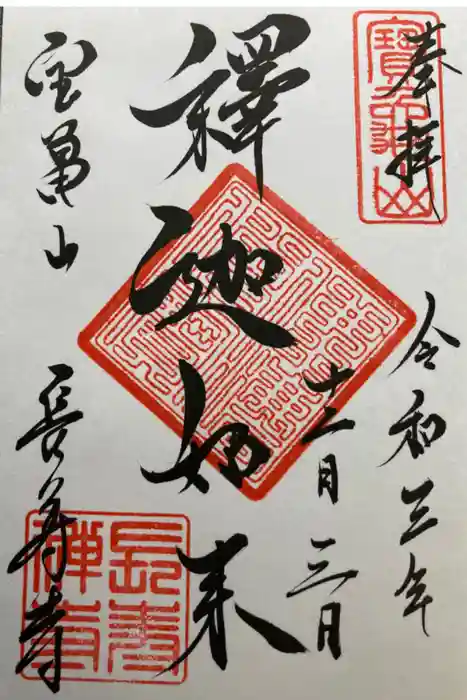 奉拝
令和三年
十二月三日
釋迦如来
宝亀山
長寿寺
長壽
禅寺